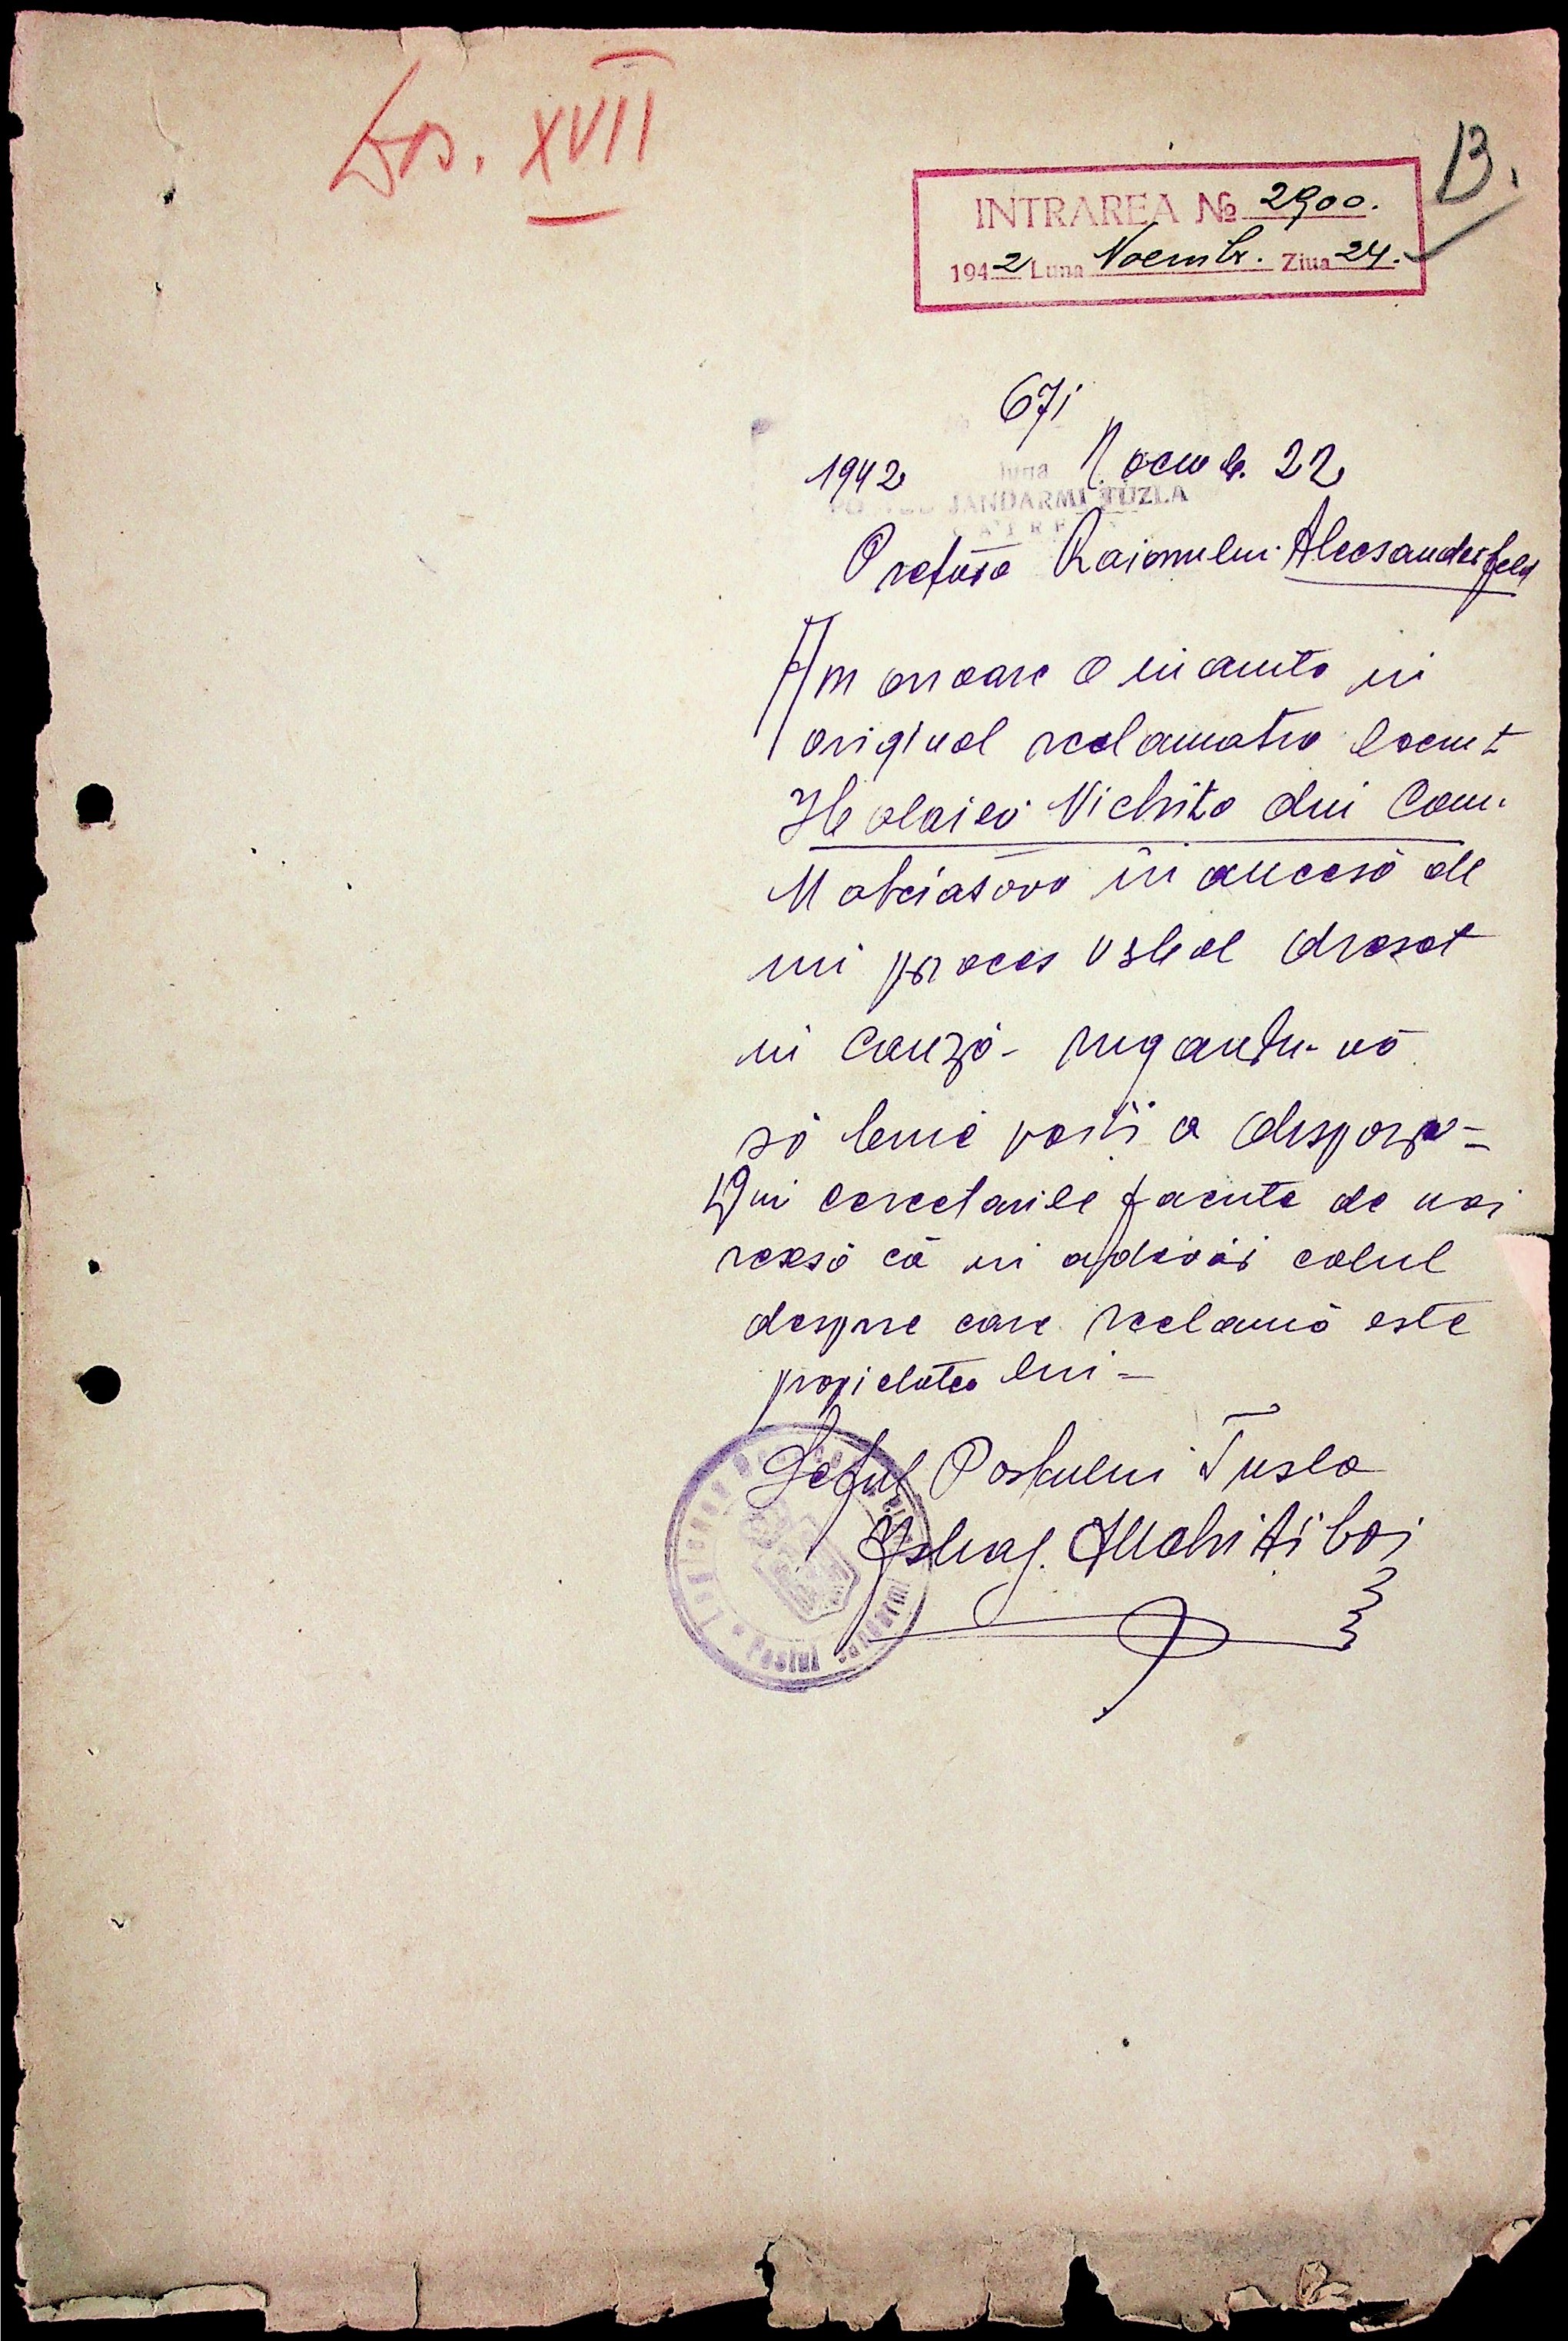 Dos. XVII
13.
INTRAREA № 2900.
1942 Luna Noembr. Ziua 24.
671
1942 luna Noemb. 22
POSTUL JANDARMI TUZLA
CATRE
Pretura Raionului Alecsanderfeld
Am onoare a inainta in
original reclamatia locuit
Nichita din Com.
in anecsă de
un proces verbal dresat
in cauză - rugandu-vă
să bine voiti a dispoza -
Din cercetarile facute de noi
reesă că in adevăr calul
despre care reclamă este
propietatea lui -
Seful Postului Tusla
Postul Jandarmi